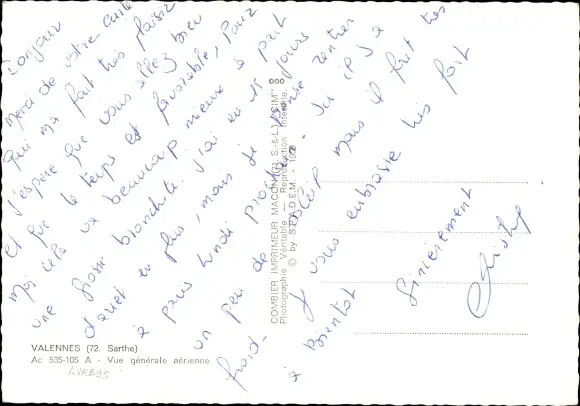 Bonjour
merci de votre carte
qui m'a fait très plaisir
J'espère que vous allez bien
et que le temps est favorable, pour
moi cela va beaucoup mieux à part
une grosse bronchite. J'ai eu 15 jours
d'arrêt en plus, mais je pense rentrer
à paris lundi prochain. Ici il y a
un peu de soleil mais il fait très
froid. Je vous embrasse très fort
à Bientot
Sincèrement
Christophe
COMBIER IMPRIMEUR MACON (71. S.-&-L.) "CIM"
Photographie Véritable — Reproduction Interdite.
© by S.P.A.D.E.M.
VALENNES (72. Sarthe)
Ac 535-105 A - Vue générale aérienne